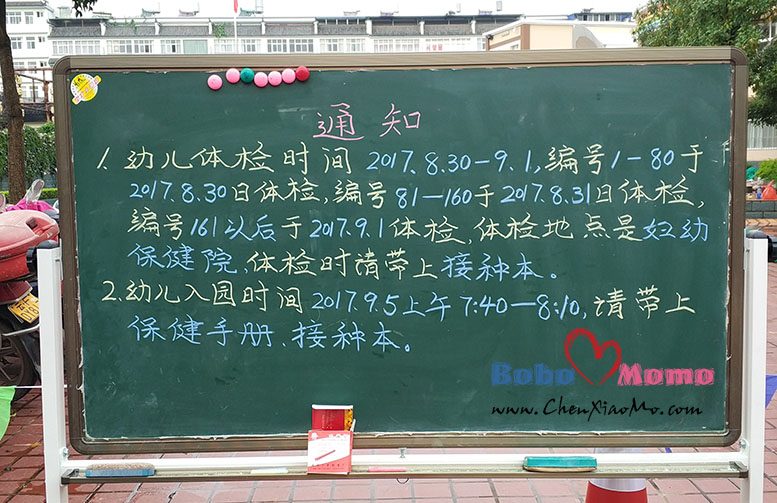 通知
1. 幼儿体检时间 2017.8.30-9.1,编号1-80于
2017.8.30日体检,编号81—160于2017.8.31日体检,
编号161以后于2017.9.1体检,体检地点是妇幼
保健院,体检时请带上接种本。
2. 幼儿入园时间 2017.9.5上午 7:40—8:10,请带上
保健手册、接种本。
Bobo Momo
www.ChenXiaoMo.com